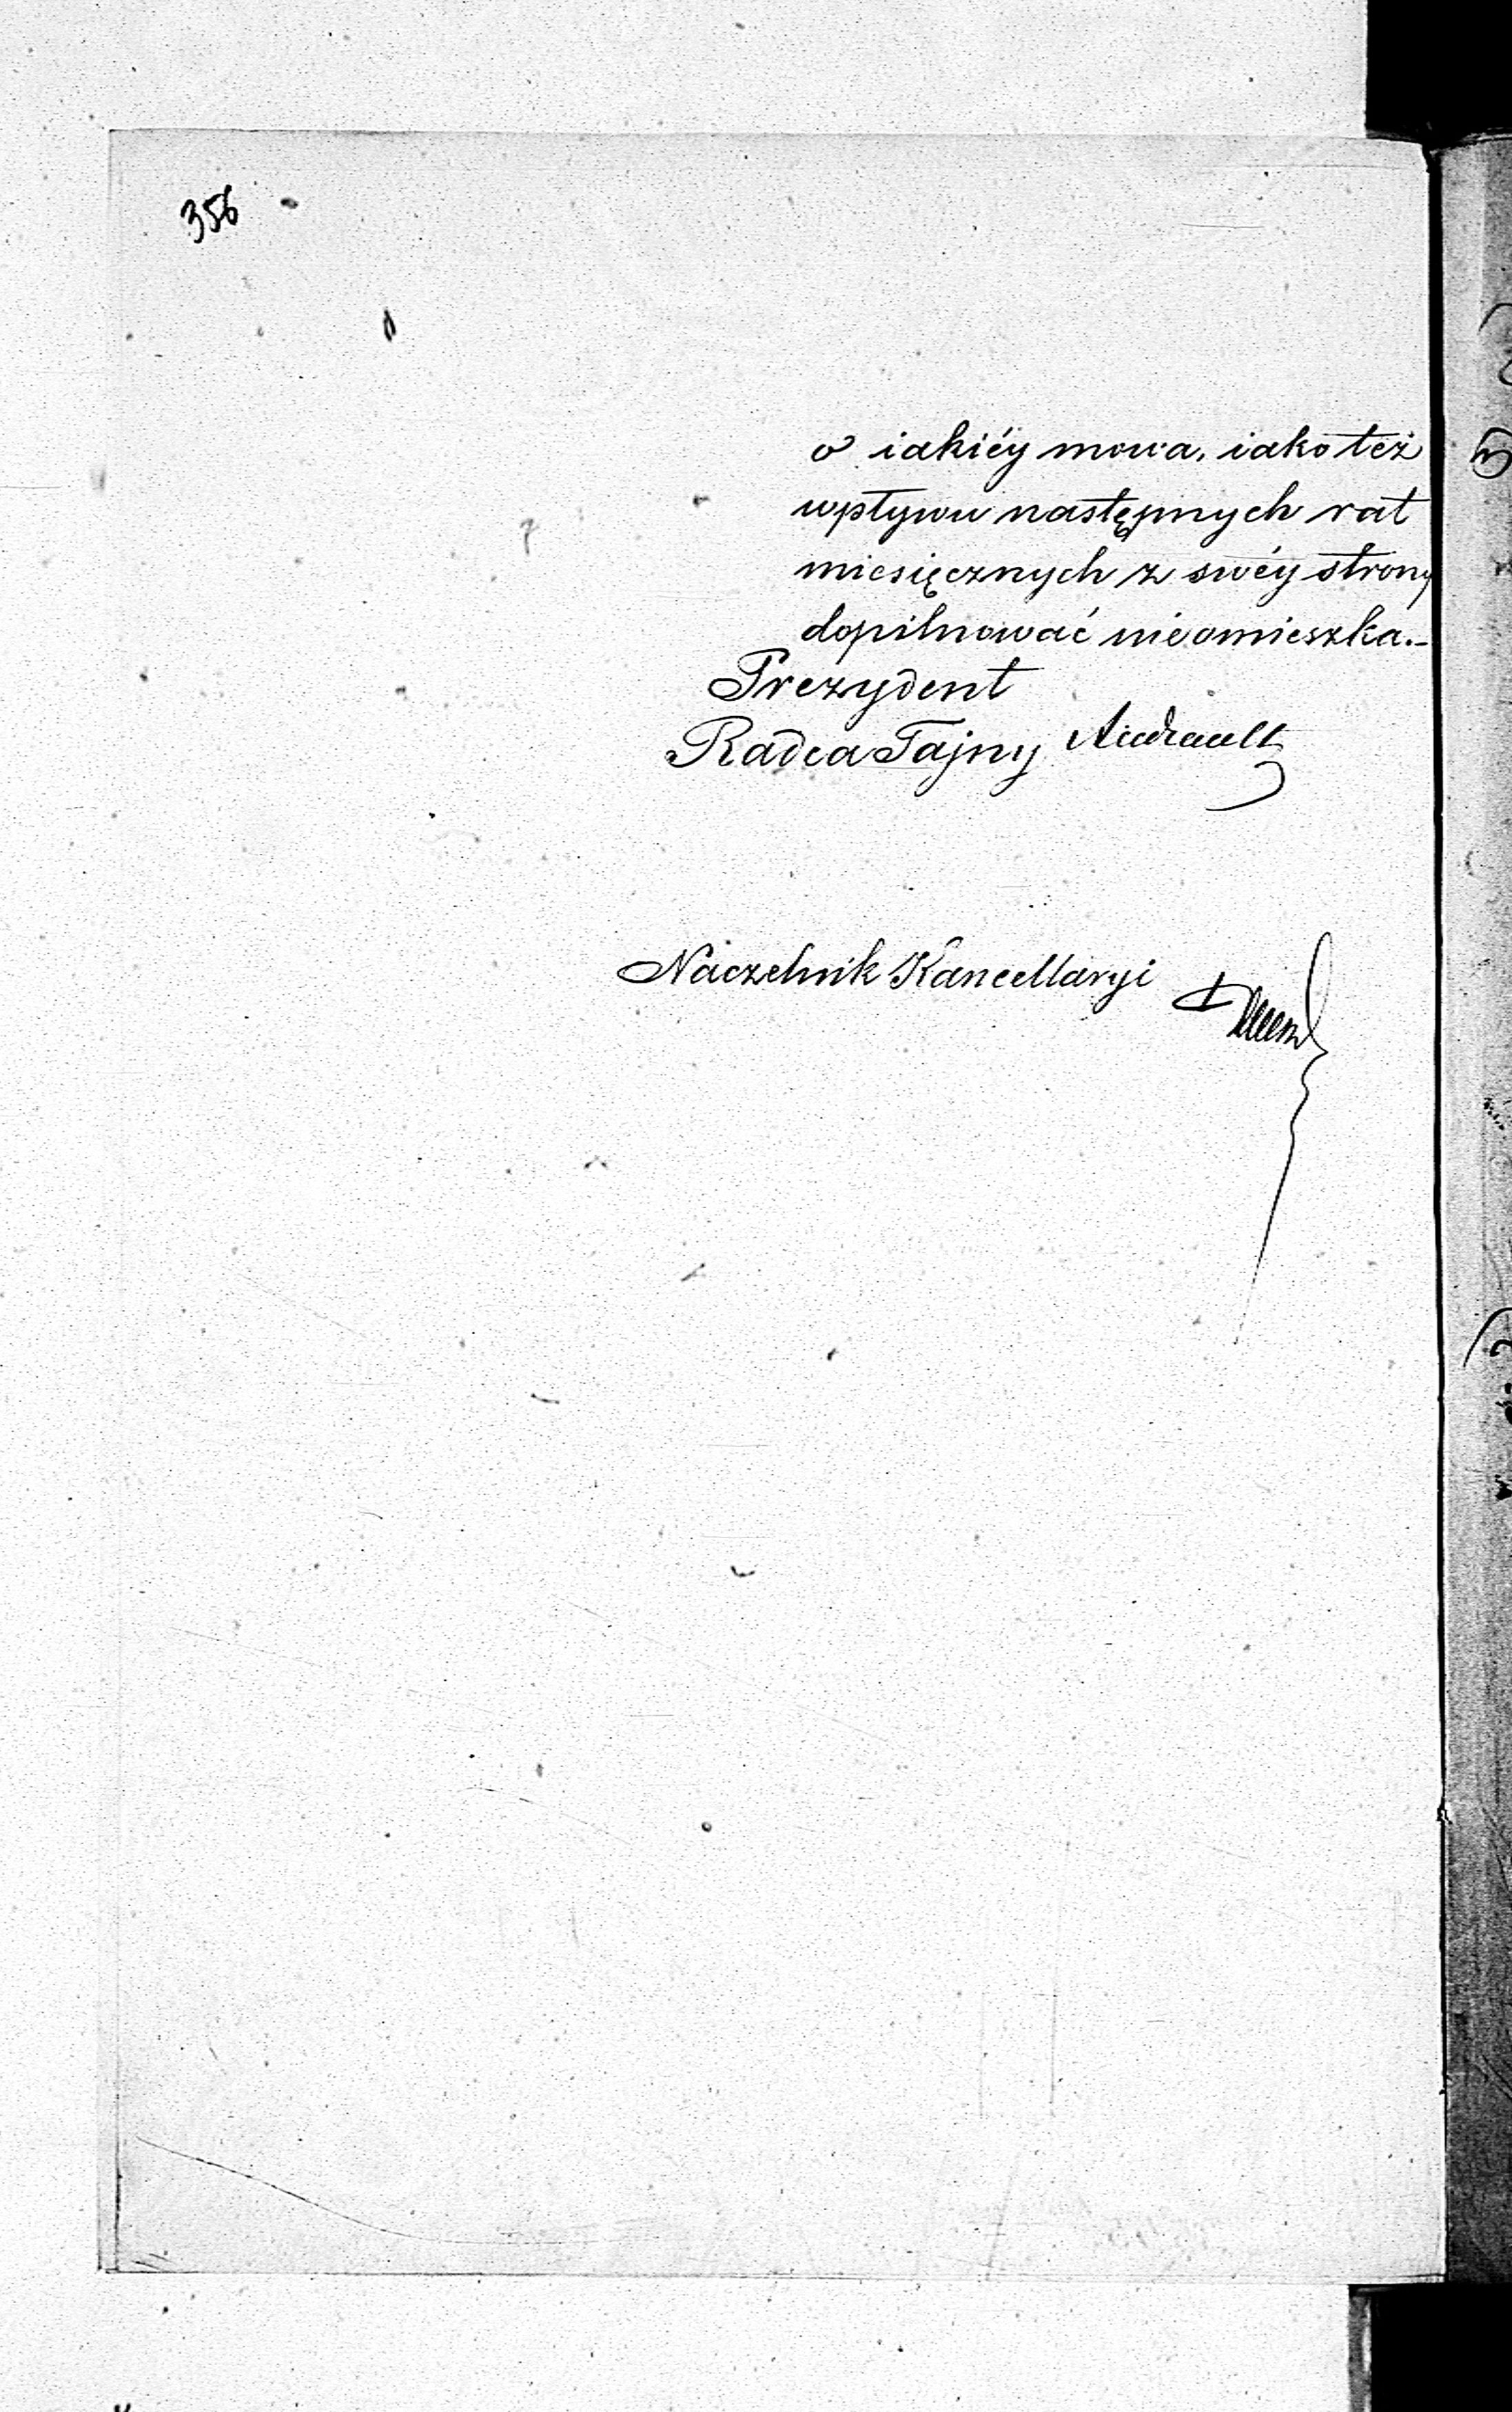 356
o iakiéy mowa, iako też
wpływu następnych rat
miesięcznych z swéy strony
dopilnować nieomieszka.-
Prezydent
Radca Tajny Andrault
Naczelnik Kancellaryi